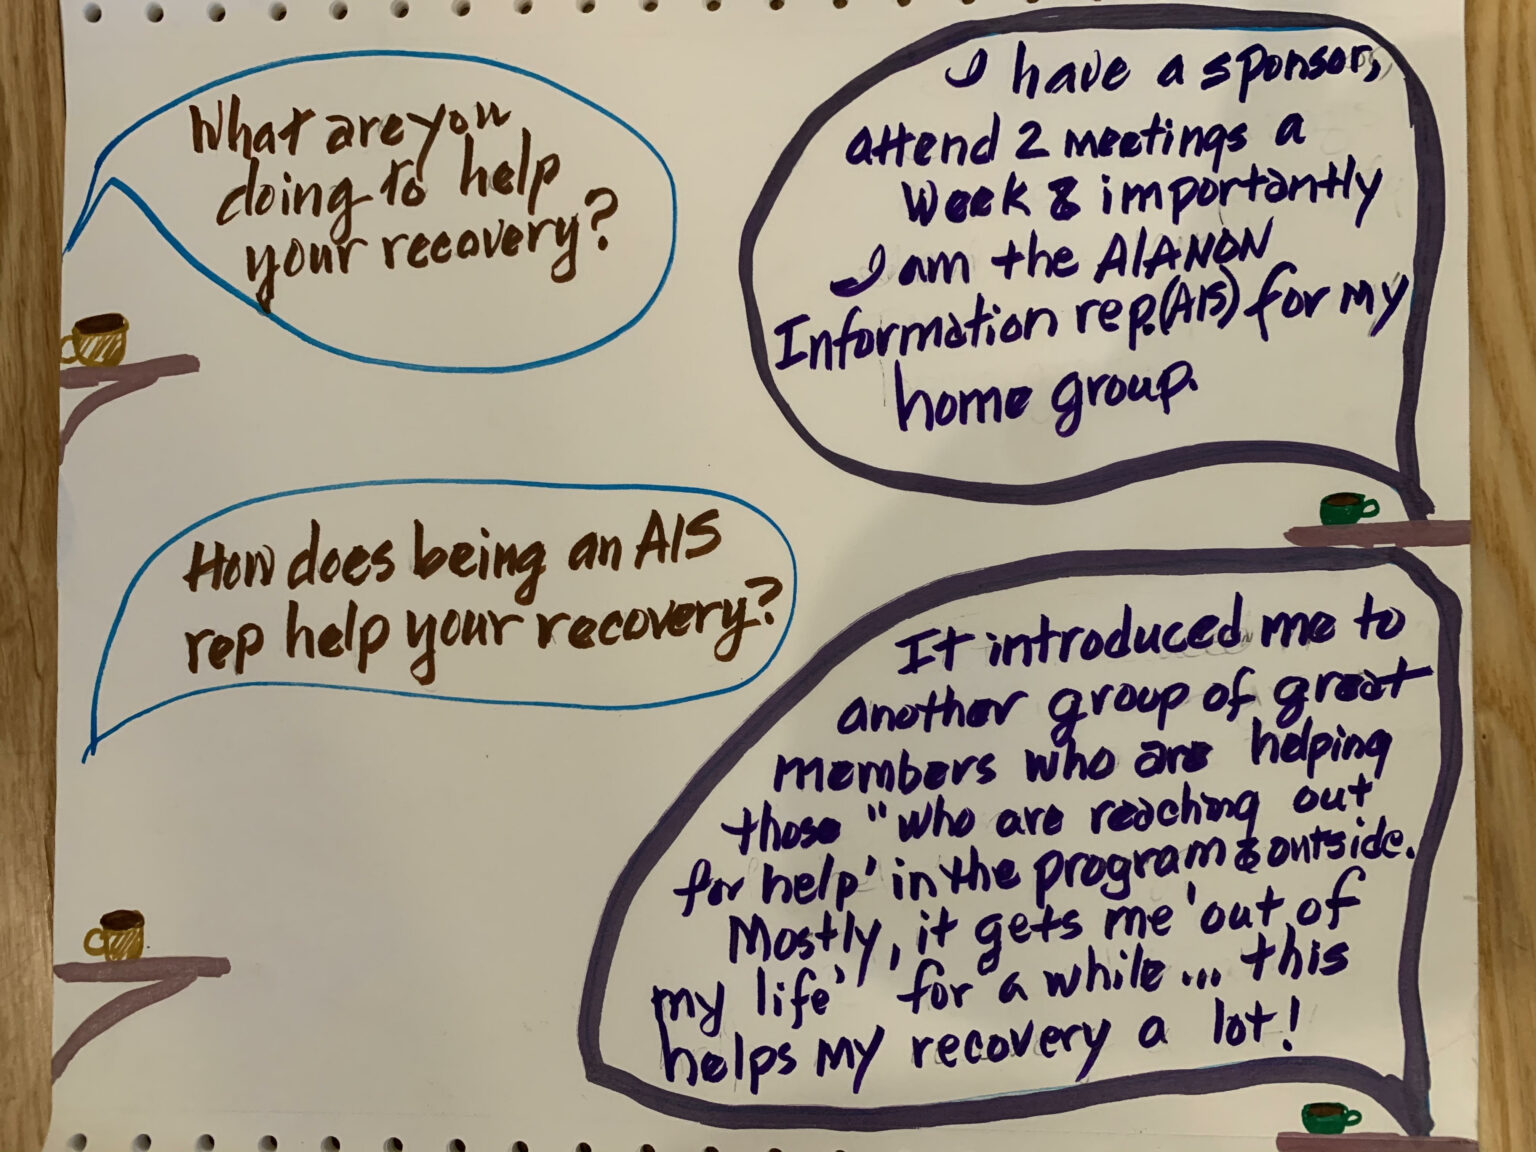 What are you
doing to help
your recovery?
I have a sponsor,
attend 2 meetings a
week & importantly
I am the AlANON
Information rep.(AIS) for my
home group.
How does being an AIS
rep help your recovery?
It introduced me to
another group of great
members who are helping
those "who are reaching out
for help' in the program & outside.
Mostly, it gets me 'out of
my life' 'for a while... this
helps my recovery a lot!